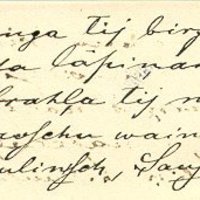 nga tij birg
da lapina
brahla tij n
roschu wain
ulinsch, Sau